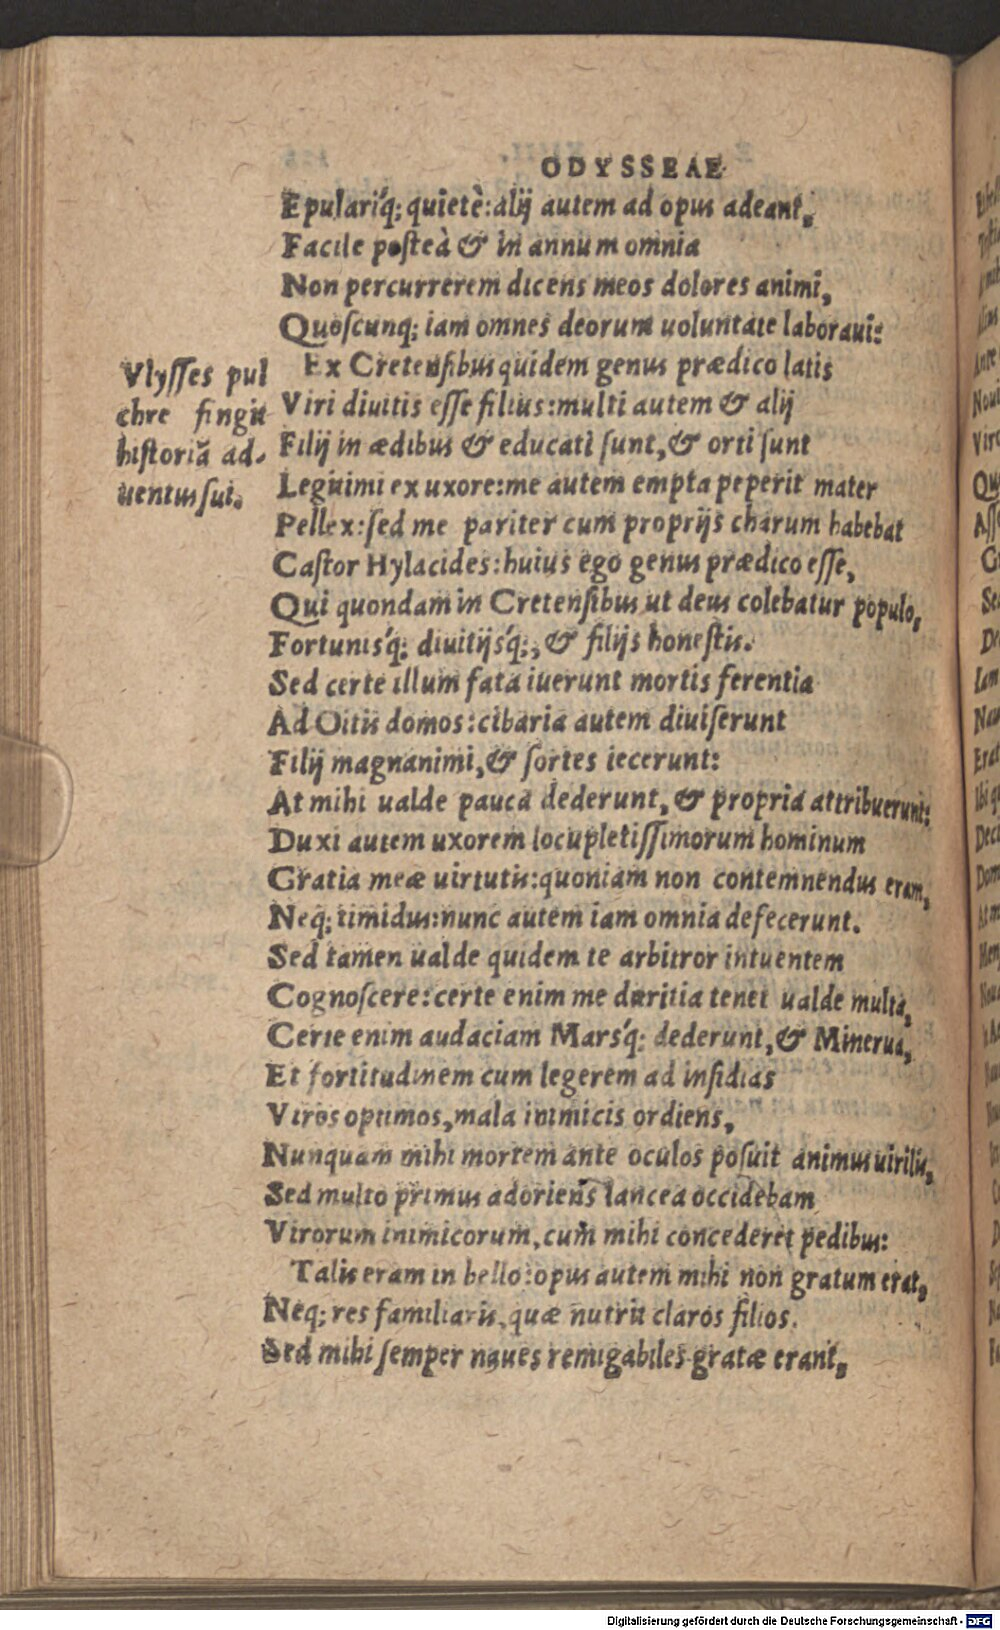 ODYSSEAE
Epulari´q; quietè: alij autem ad opus adeant,
Facile posteà & in annum omnia
Non percurrerem dicens meos dolores animi,
Quoscunq; iam omnes deorum uoluntate laboraui:
Ex Cretensibus quidem genus prædico latis
Viri diuitis esse filius: multi autem & alij
Filij in ædibus & educati sunt, & orti sunt
Legitimi ex uxore: me autem empta peperit mater
Pellex: sed me pariter cum proprijs charum habebat
Castor Hylacides: huius ego genus prædico esse,
Qui quondam in Cretensibus ut deus colebatur populo,
Fortunis´q; diuitijs´q;, & filijs honestis.
Sed certe illum fata iuerunt mortis ferentia
Ad Oitis domos: cibaria autem diuiserunt
Filij magnanimi, & sortes iecerunt:
At mihi ualde pauca dederunt, & propria attribuerunt:
Duxi autem uxorem locupletissimorum hominum
Gratia meæ uirtutis: quoniam non contemnendus eram,
Neq; timidus: nunc autem iam omnia defecerunt.
Sed tamen ualde quidem te arbitror intuentem
Cognoscere: certe enim me duritia tenet ualde multa,
Certe enim audaciam Mars´q; dederunt, & Minerua,
Et fortitudinem cum legerem ad insidias
Viros optimos, mala inimicis ordiens,
Nunquam mihi mortem ante oculos posuit animus uirilis,
Sed multo primus adoriens lancea occidebam
Virorum inimicorum, cum mihi concederet pedibus:
Talis eram in bello: opus autem mihi non gratum erat,
Neq; res familiaris, quæ nutrit claros filios.
Sed mihi semper naues remigabiles gratæ erant,
Vlysses pul
chre fingit
historiã ad-
uentus sui.
Digitalisierung gefördert durch die Deutsche Forschungsgemeinschaft - DFG